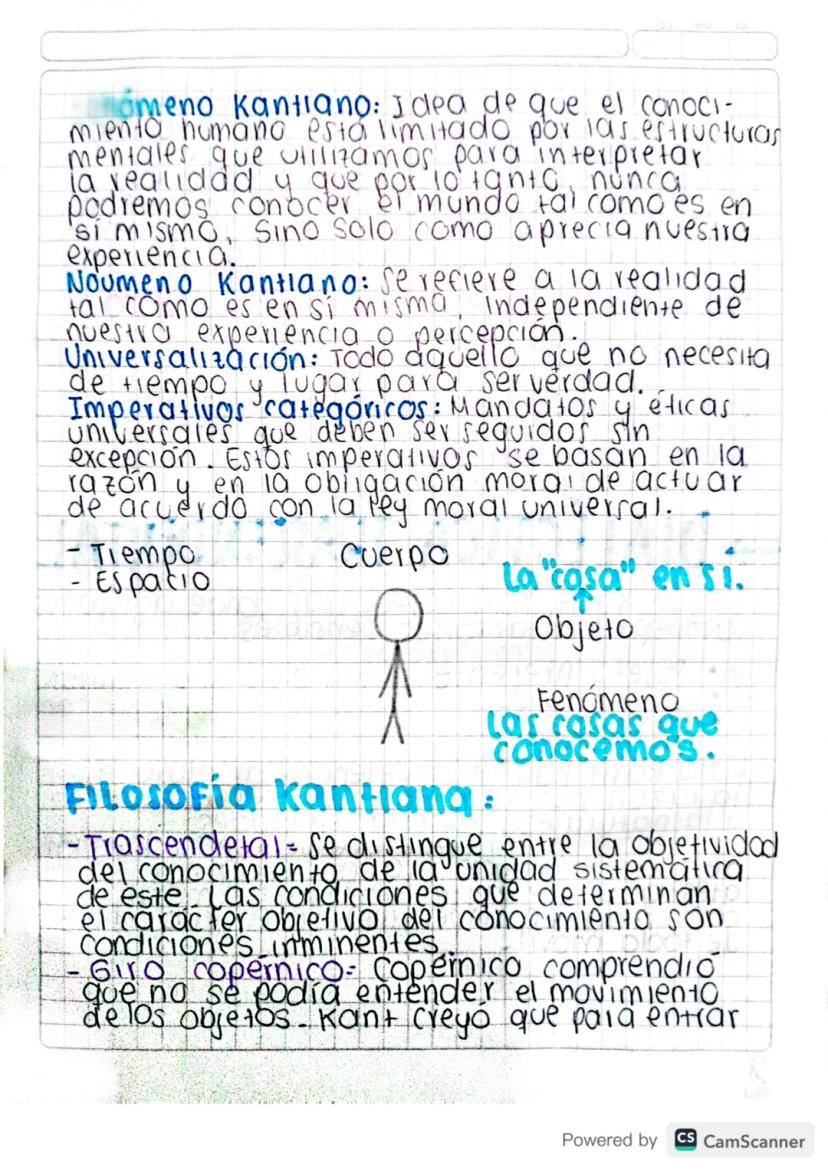 ómeno Kantiano: Idea de que el conoci-
miento humano está limitado por las estructuras
mentales que utilizamos para interpretar
la realidad y que por lo tanto, nunca
podremos conocer el mundo tal como es en
sí mismo, Sino solo como aprecia nuestra
experiencia.
Noumeno Kantiano: Se refiere a la realidad
tal como es en sí misma, independiente de
nuestra experiencia o percepción.
Universalización: Todo aquello que no necesita
de tiempo y lugar para ser verdad.
Imperativos categóricos: Mandatos y éticas
universales que deben ser seguidos sin
excepción. Estos imperativos se basan en la
razón y en la obligación moral de actuar
de acuerdo con la ley moral universal.
- Tiempo
- Espacio
Cuerpo
La "cosa" en sí.
Objeto
Fenómeno
Las cosas que
conocemos.
Filosofía Kantiana:
- Trascendetal= Se distingue entre la objetividad
del conocimiento de la unidad sistemática
de este. Las condiciones que determinan
el carácter objetivo del conocimiento son
condiciones inminentes.
- Giro copérnico= Copérnico comprendió
que no se podía entender el movimiento
de los objetos. Kant creyó que para entrar
Powered by CS CamScanner